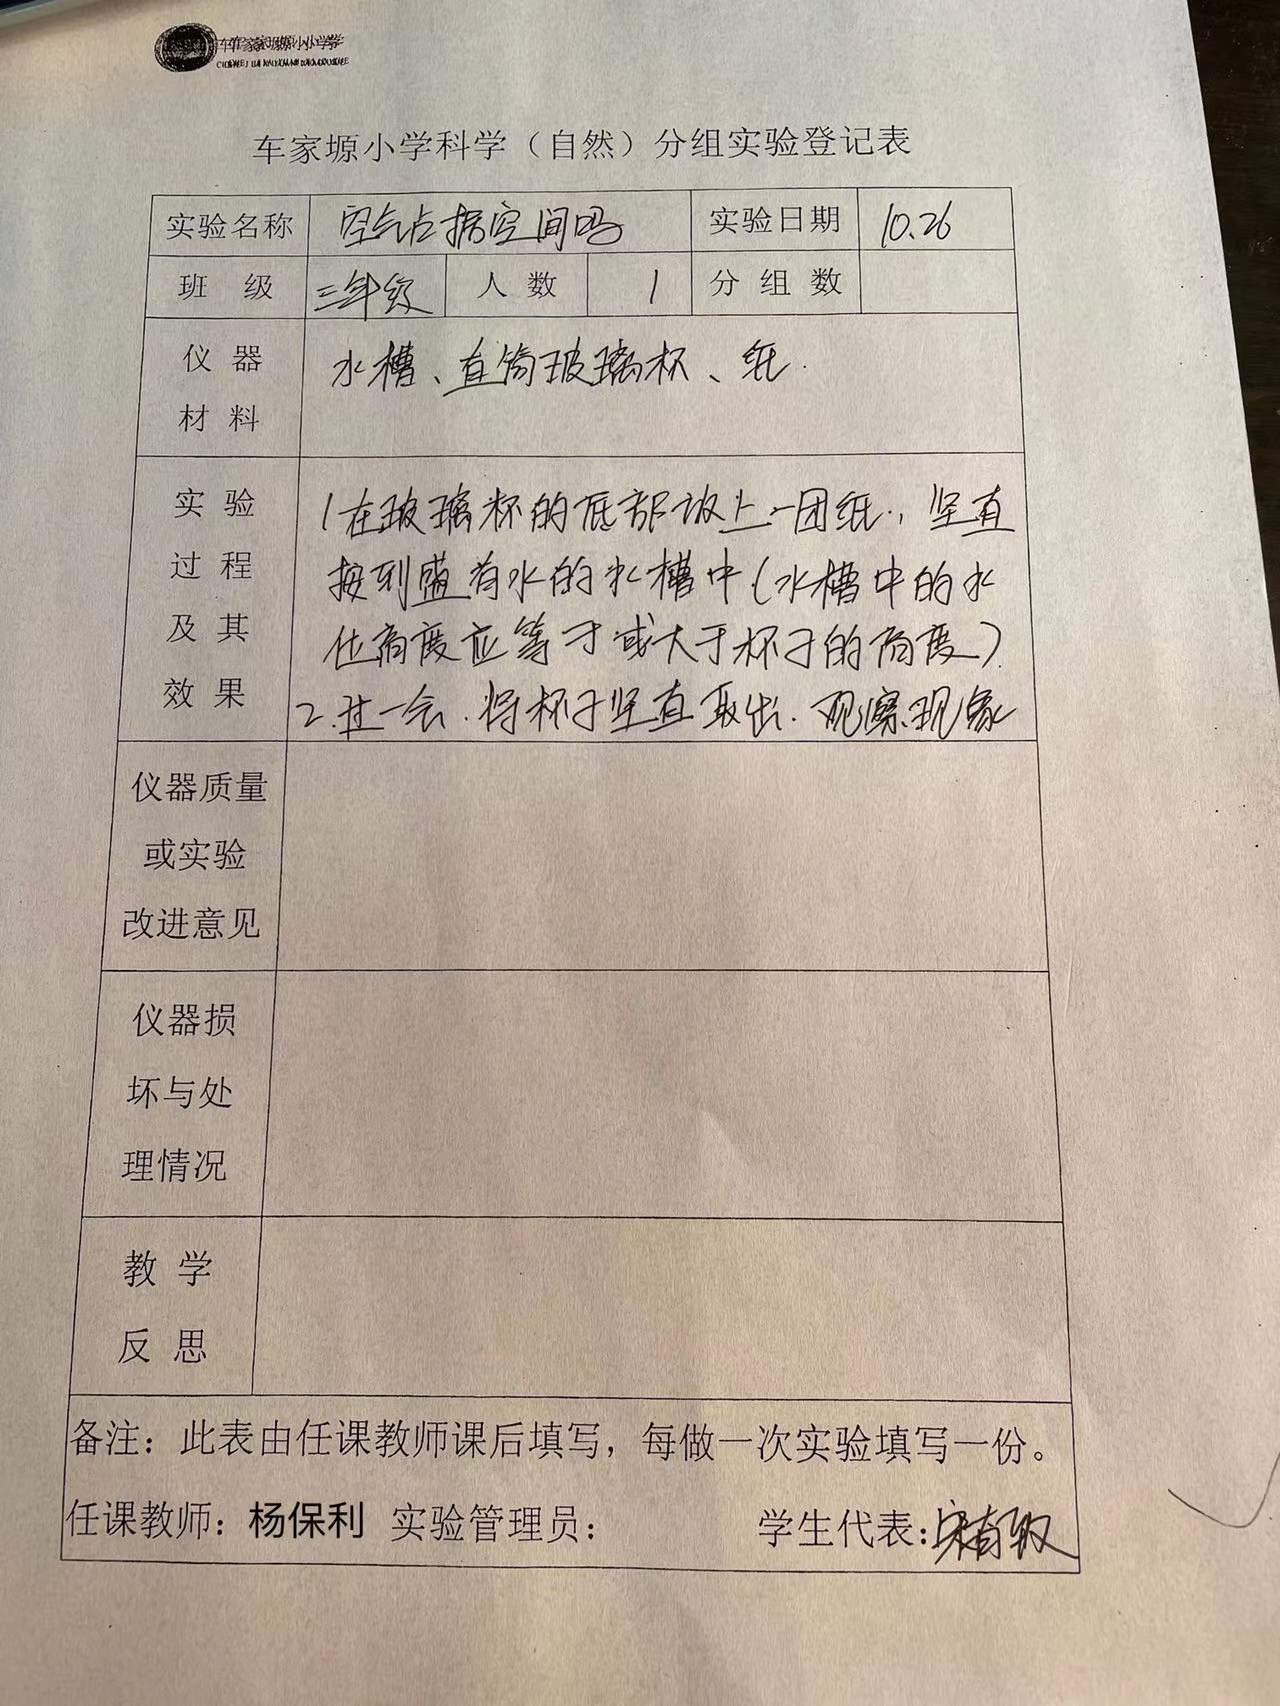 车家塬小学科学（自然）分组实验登记表
实验名称 空气占据空间吗 实验日期 10.26
班 级 三年级 人 数 1 分 组 数
仪 器
材 料
水槽、直筒玻璃杯、纸.
实 验
过 程
及 其
效 果
1在玻璃杯的底部放上一团纸，坚直
按到盛有水的水槽中(水槽中的水
位高度应等于或大于杯子的高度)
2.过一会.将杯子坚直取出.观察现象
仪器质量
或实验
改进意见
仪器损
坏与处
理情况
教 学
反 思
备注：此表由任课教师课后填写，每做一次实验填写一份。
任课教师：杨保利 实验管理员： 学生代表：